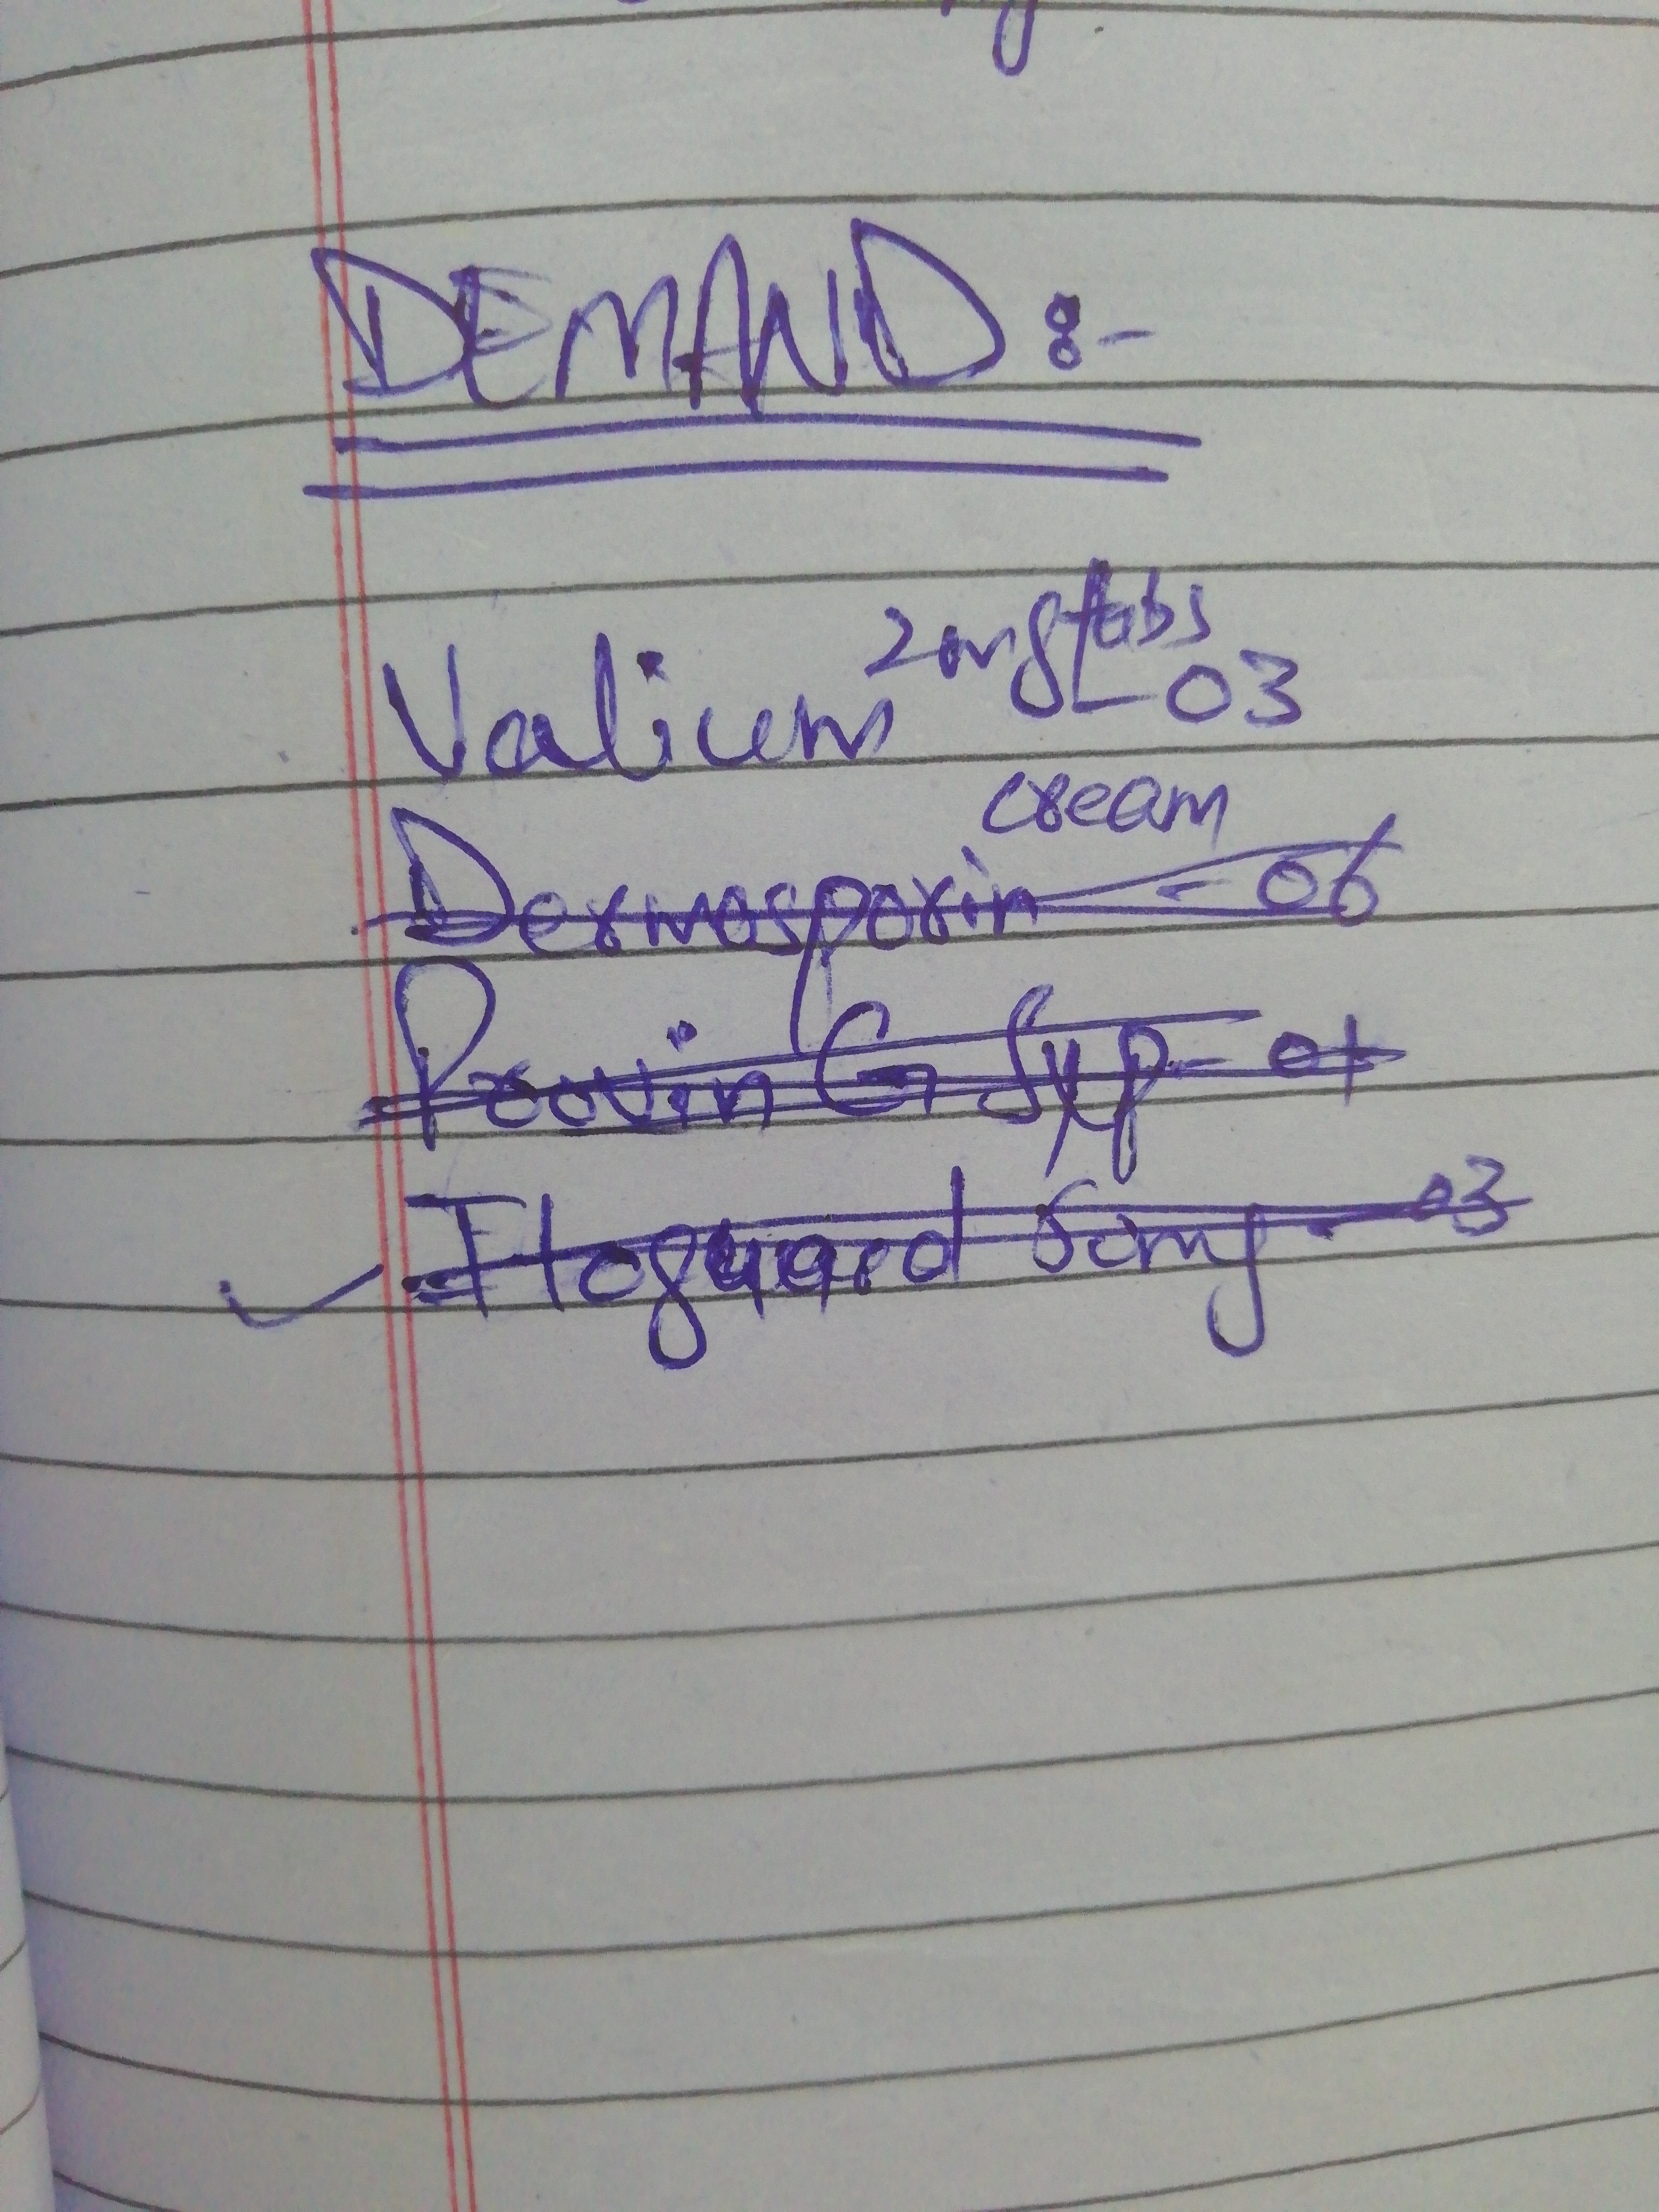 DEMAND :-
Valium 2mg tabs - 03
Dermosporin cream - 06
G Syp - 01
Itoguard 50mg - 03